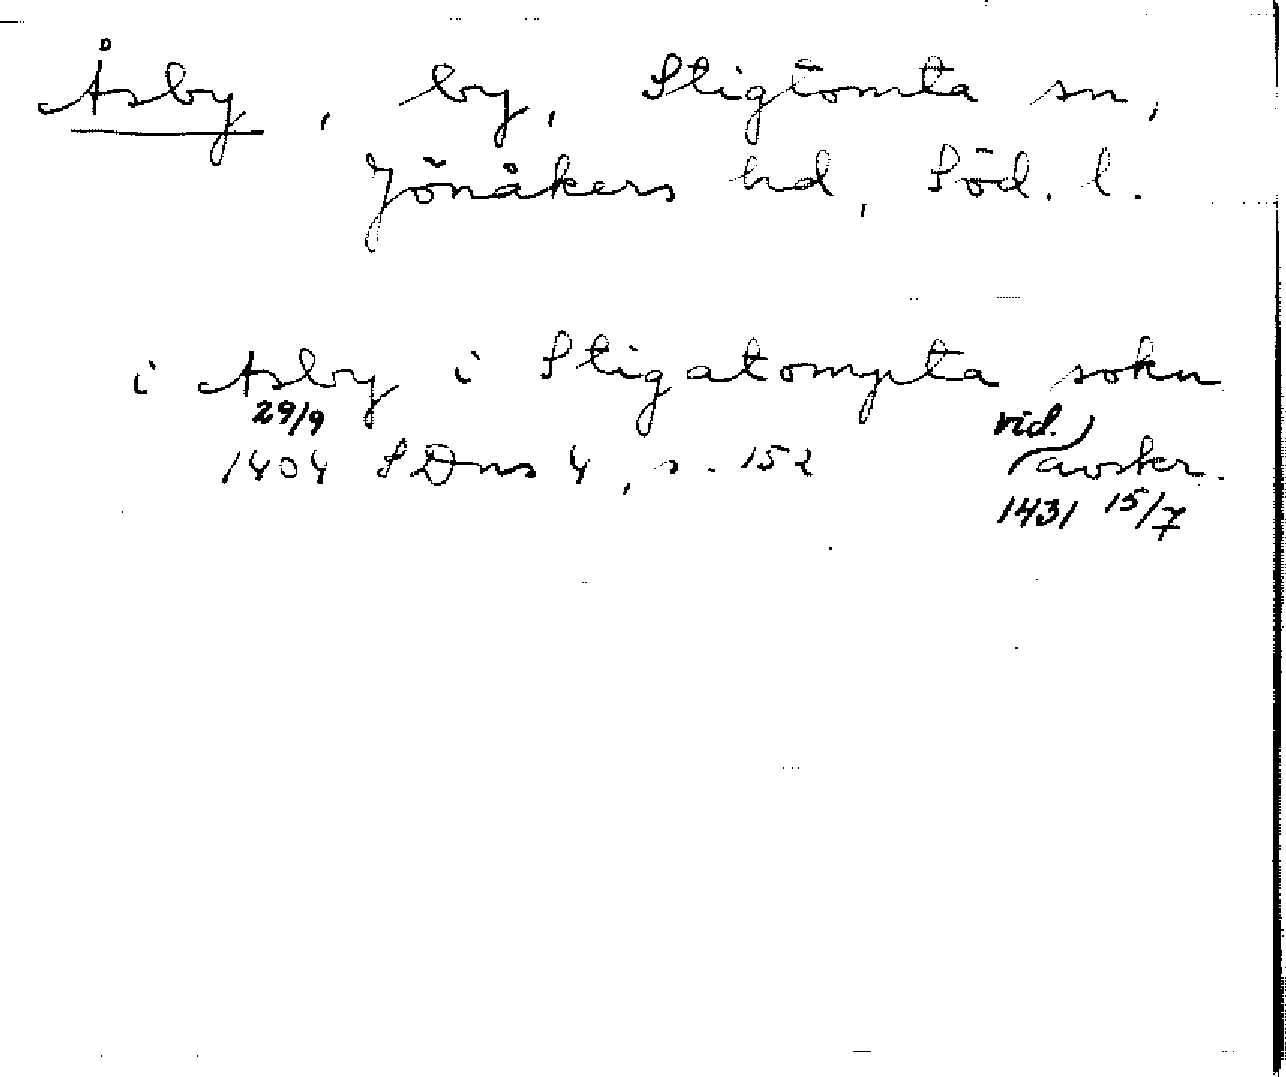 Åsby, by, Stigtomta sn,
Jönåkers hd, Söd. l.
i Asby i Stigatompta sokn
29/9 vid.
1404 SDns 4, s. 152 avskr.
1431 15/7